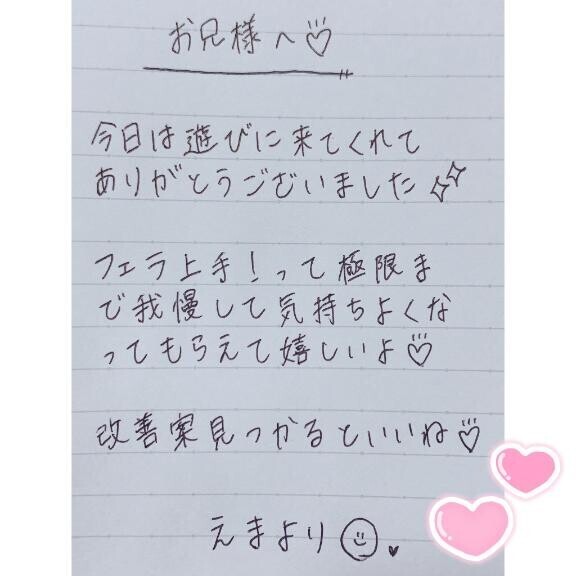 お兄様へ♡
今日は遊びに来てくれて
ありがとうございました✨
フェラ上手!って極限ま
で我慢して気持ちよくな
ってもらえて嬉しいよ♡
改善案見つかるといいね♡
えまより☺♥